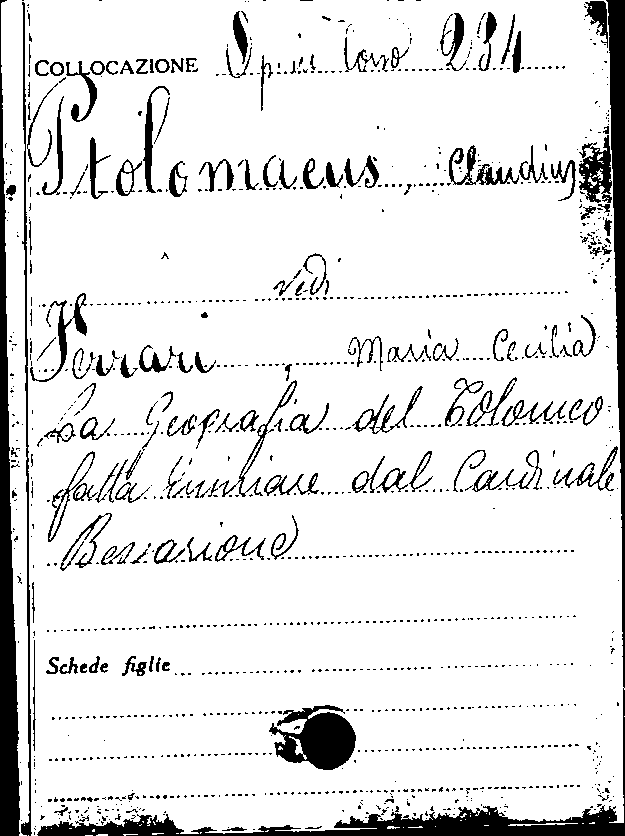 COLLOCAZIONE 234
Ptolomaeus, Claudius
vedi
Ferrari, Maria Cecilia
La Geografia del Tolomeo
fatta miniare dal Cardinale
Bessarione
Schede figlie